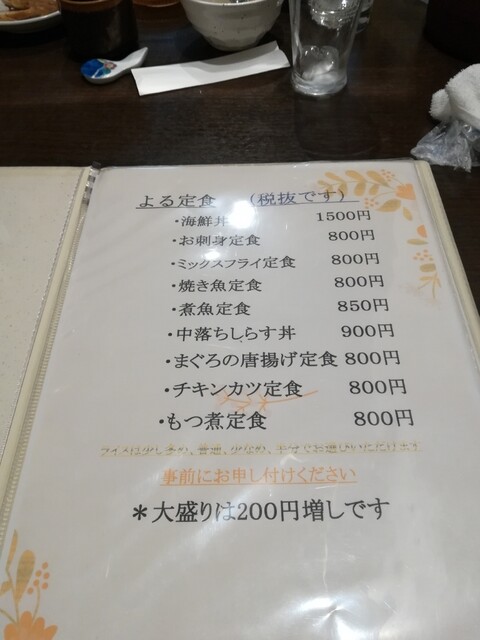 よる定食 (税抜です)
・海鮮丼 1500円
・お刺身定食 800円
・ミックスフライ定食 800円
・焼き魚定食 800円
・煮魚定食 850円
・中落ちしらす丼 900円
・まぐろの唐揚げ定食 800円
・チキンカツ定食 800円
・もつ煮定食 800円
お選びいただけます
事前にお申し付けください
＊大盛りは200円増しです